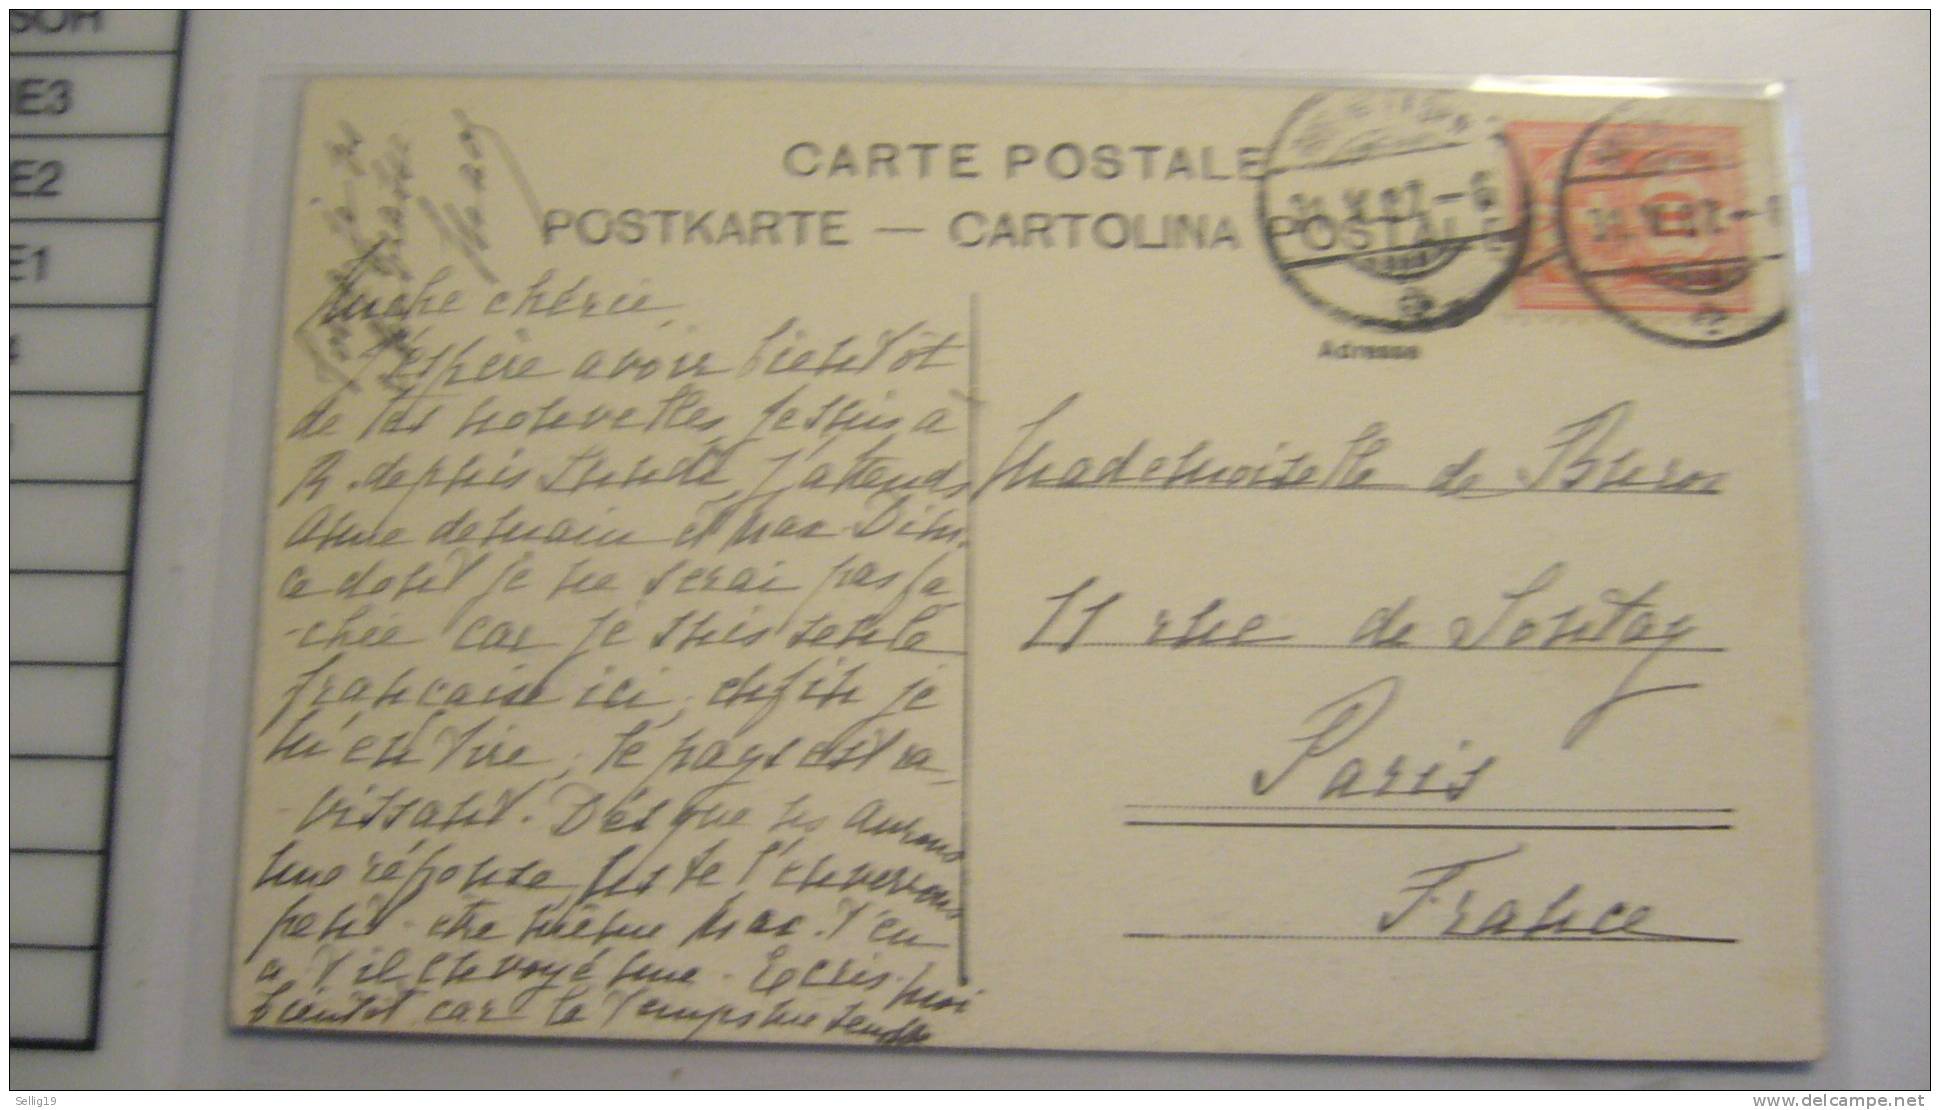 SOR
IE3
E2
E1
CARTE POSTALE
POSTKARTE — CARTOLINA POSTALE
Adresse
chérie
J'espère avoir bientôt
de tes nouvelles, je suis à
R. depuis lundi, j'attends
Anne demain et Max
ce dont je ne serai pas fâ
-chée car je suis seule
française ici, enfin je
m'en tire, le pays est ra
-vissant. Dès que ns aurons
une réponse, ns te l'enverrons
peut-être même Max t'en
a t'il envoyé une. Ecris-moi
bientôt car le temps me semble
Mademoiselle de
11 rue de Sontay
Paris
France
Sellig19
www.delcampe.net